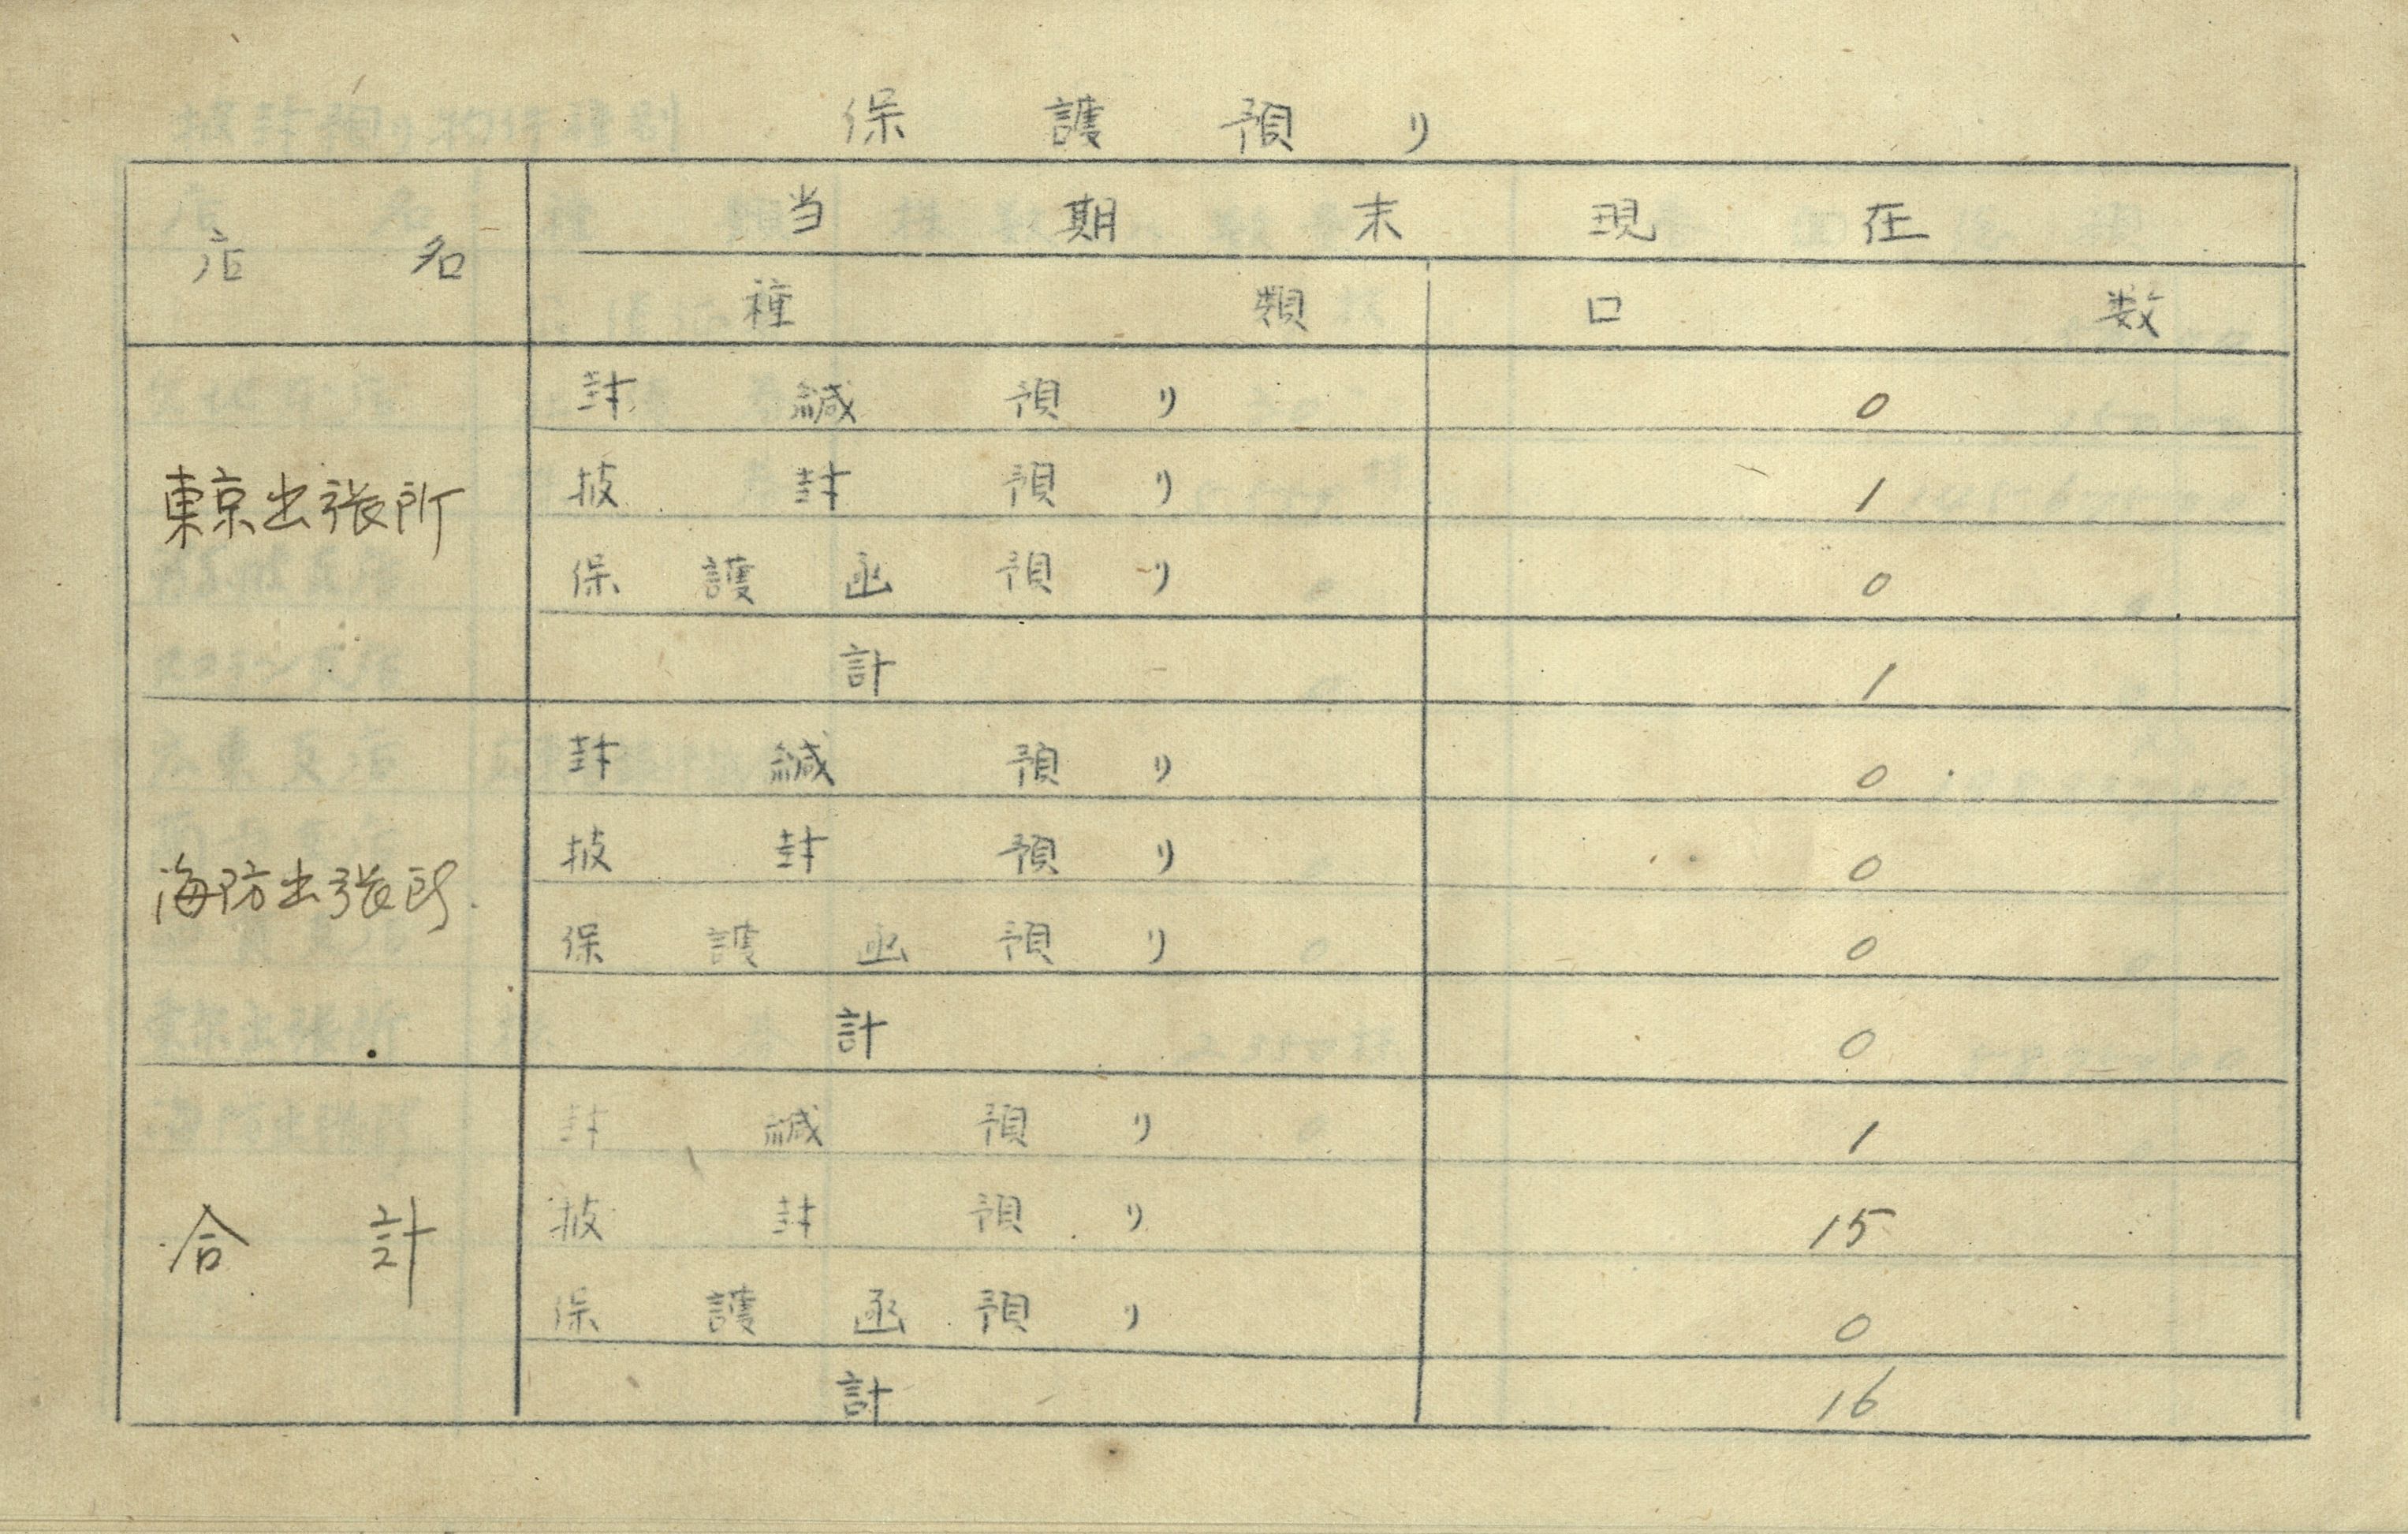 保護預リ
店名 当期末現在
種類 口数
東京出張所 封緘預リ 0
披封預リ 1
保護函預リ 0
計 1
海防出張所 封緘預リ 0
披封預リ 0
保護函預リ 0
計 0
合計 封緘預リ 1
披封預リ 15
保護函預リ 0
計 16